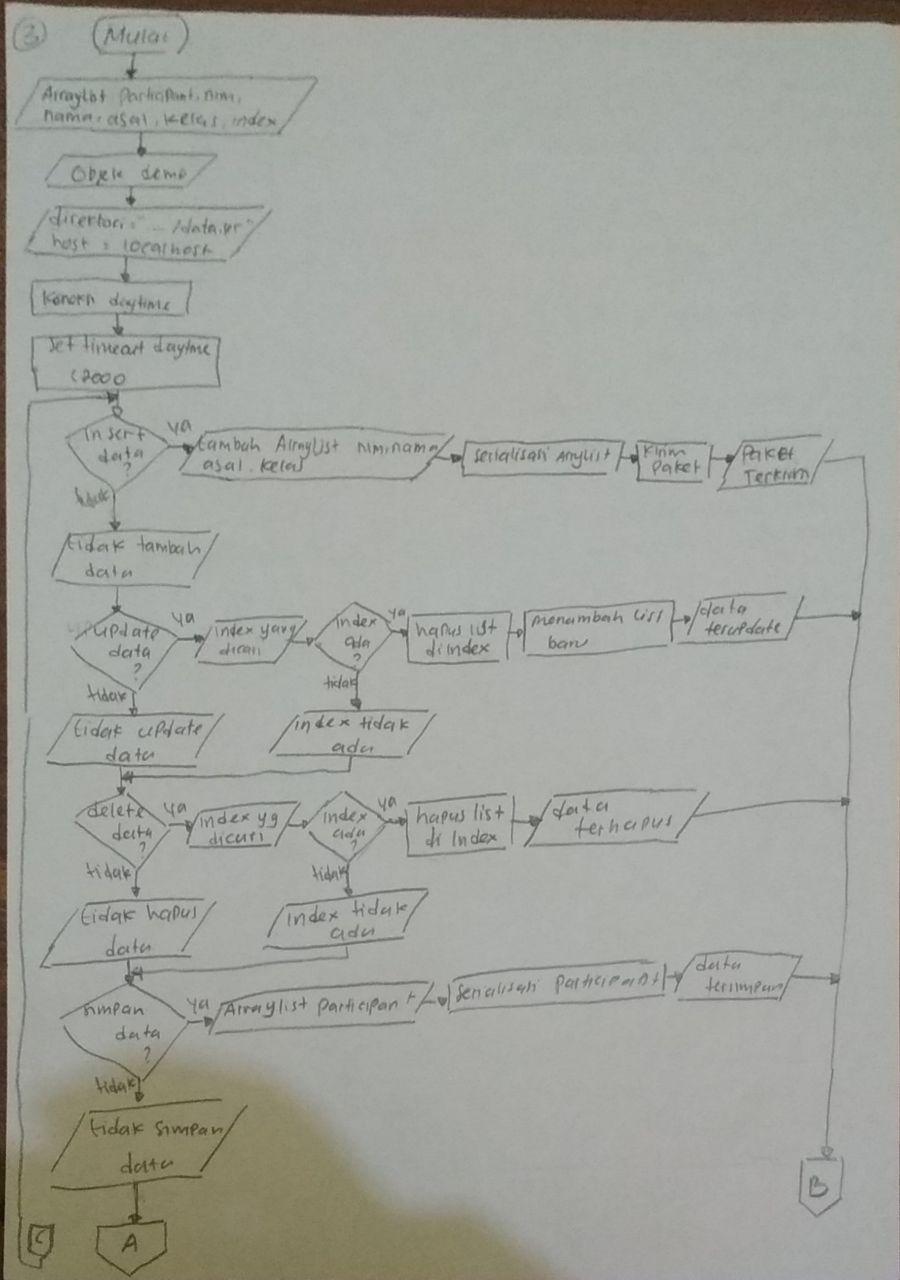 3
Mulai
Arraylist participant, nim,
nama, asal, kelas, index
Objek demo
direktori = "... /data.
host = localhost
daytime
set timeout daytime
(2000
insert
data
?
ya
tambah Arraylist nim, nama
asal, kelas
serialisasi
kirim
paket
paket
Terkirim
tidak
tidak tambah
data
update
data
?
ya
index yang
dicari
index
ada
?
ya
hapus list
di index
menambah list
baru
data
terupdate
tidak
tidak
tidak update
data
index tidak
ada
delete
data
?
ya
index yg
dicari
index
ada
?
ya
hapus list
di index
data
terhapus
tidak
tidak
tidak hapus
data
index tidak
ada
simpan
data
?
ya
Arraylist participant
serialisasi participant
data
tersimpan
tidak
tidak simpan
data
B
C
A